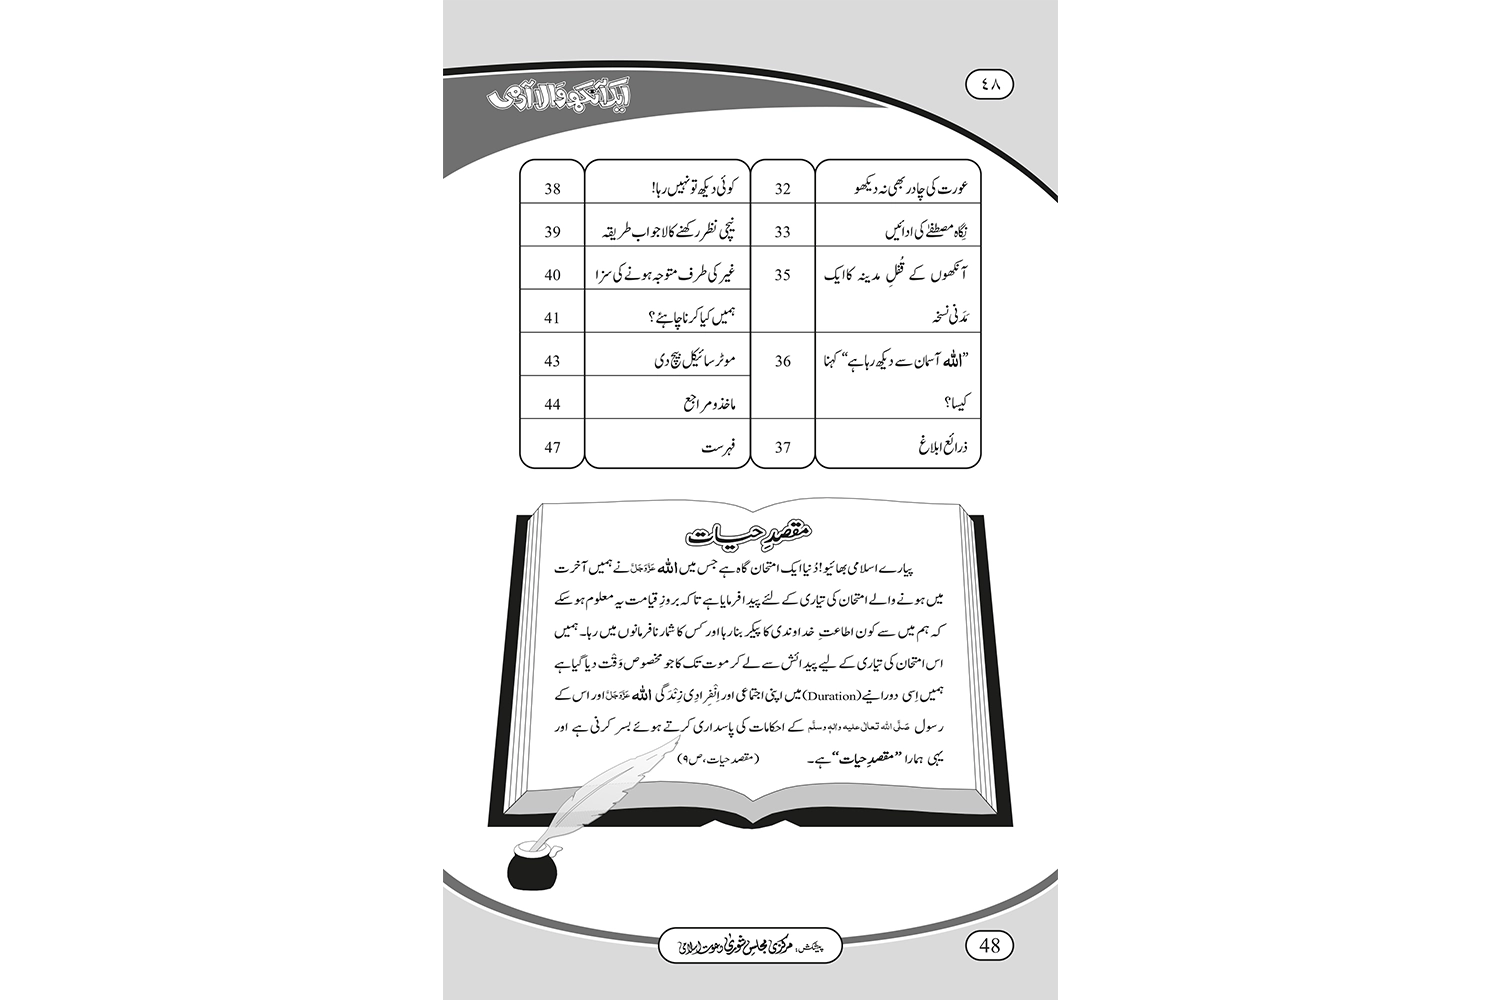 ٤٨
ایک آنکھ والا آدمی
عورت کی چادر بھی نہ دیکھو 32 کوئی دیکھ تو نہیں رہا! 38
نگاہِ مصطفٰے کی ادائیں 33 نیچی نظر رکھنے کا لاجواب طریقہ 39
آنکھوں کے قُفلِ مدینہ کا ایک 35 غیر کی طرف متوجہ ہونے کی سزا 40
مَدَنی نسخہ ہمیں کیا کرنا چاہئے؟ 41
”الله آسمان سے دیکھ رہا ہے“ کہنا 36 موٹر سائیکل بیچ دی 43
کیسا؟ ماخذ و مراجع 44
ذرائع ابلاغ 37 فہرست 47
مقصدِ حیات
پیارے اسلامی بھائیو! دُنیا ایک امتحان گاہ ہے جس میں الله عَزَّوَجَلَّ نے ہمیں آخرت
میں ہونے والے امتحان کی تیاری کے لئے پیدا فرمایا ہے تاکہ بروزِ قیامت یہ معلوم ہو سکے
کہ ہم میں سے کون اطاعتِ خداوندی کا پیکر بنا رہا اور کس کا شمار نافرمانوں میں رہا۔ ہمیں
اس امتحان کی تیاری کے لیے پیدائش سے لے کر موت تک کا جو مخصوص وَقْت دیا گیا ہے
ہمیں اِسی دورانیے (Duration) میں اپنی اجتماعی اور اِنْفِرادِی زِنْدَگی الله عَزَّوَجَلَّ اور اس کے
رسول صَلَّی الله تعالٰی علیه واٰلہٖ وسلَّم کے احکامات کی پاسداری کرتے ہوئے بسر کرنی ہے اور
یہی ہمارا ”مقصدِ حیات“ ہے۔ (مقصد حیات، ص۹)
پیشکش: مرکزی مجلسِ شوریٰ دعوتِ اسلامی
48